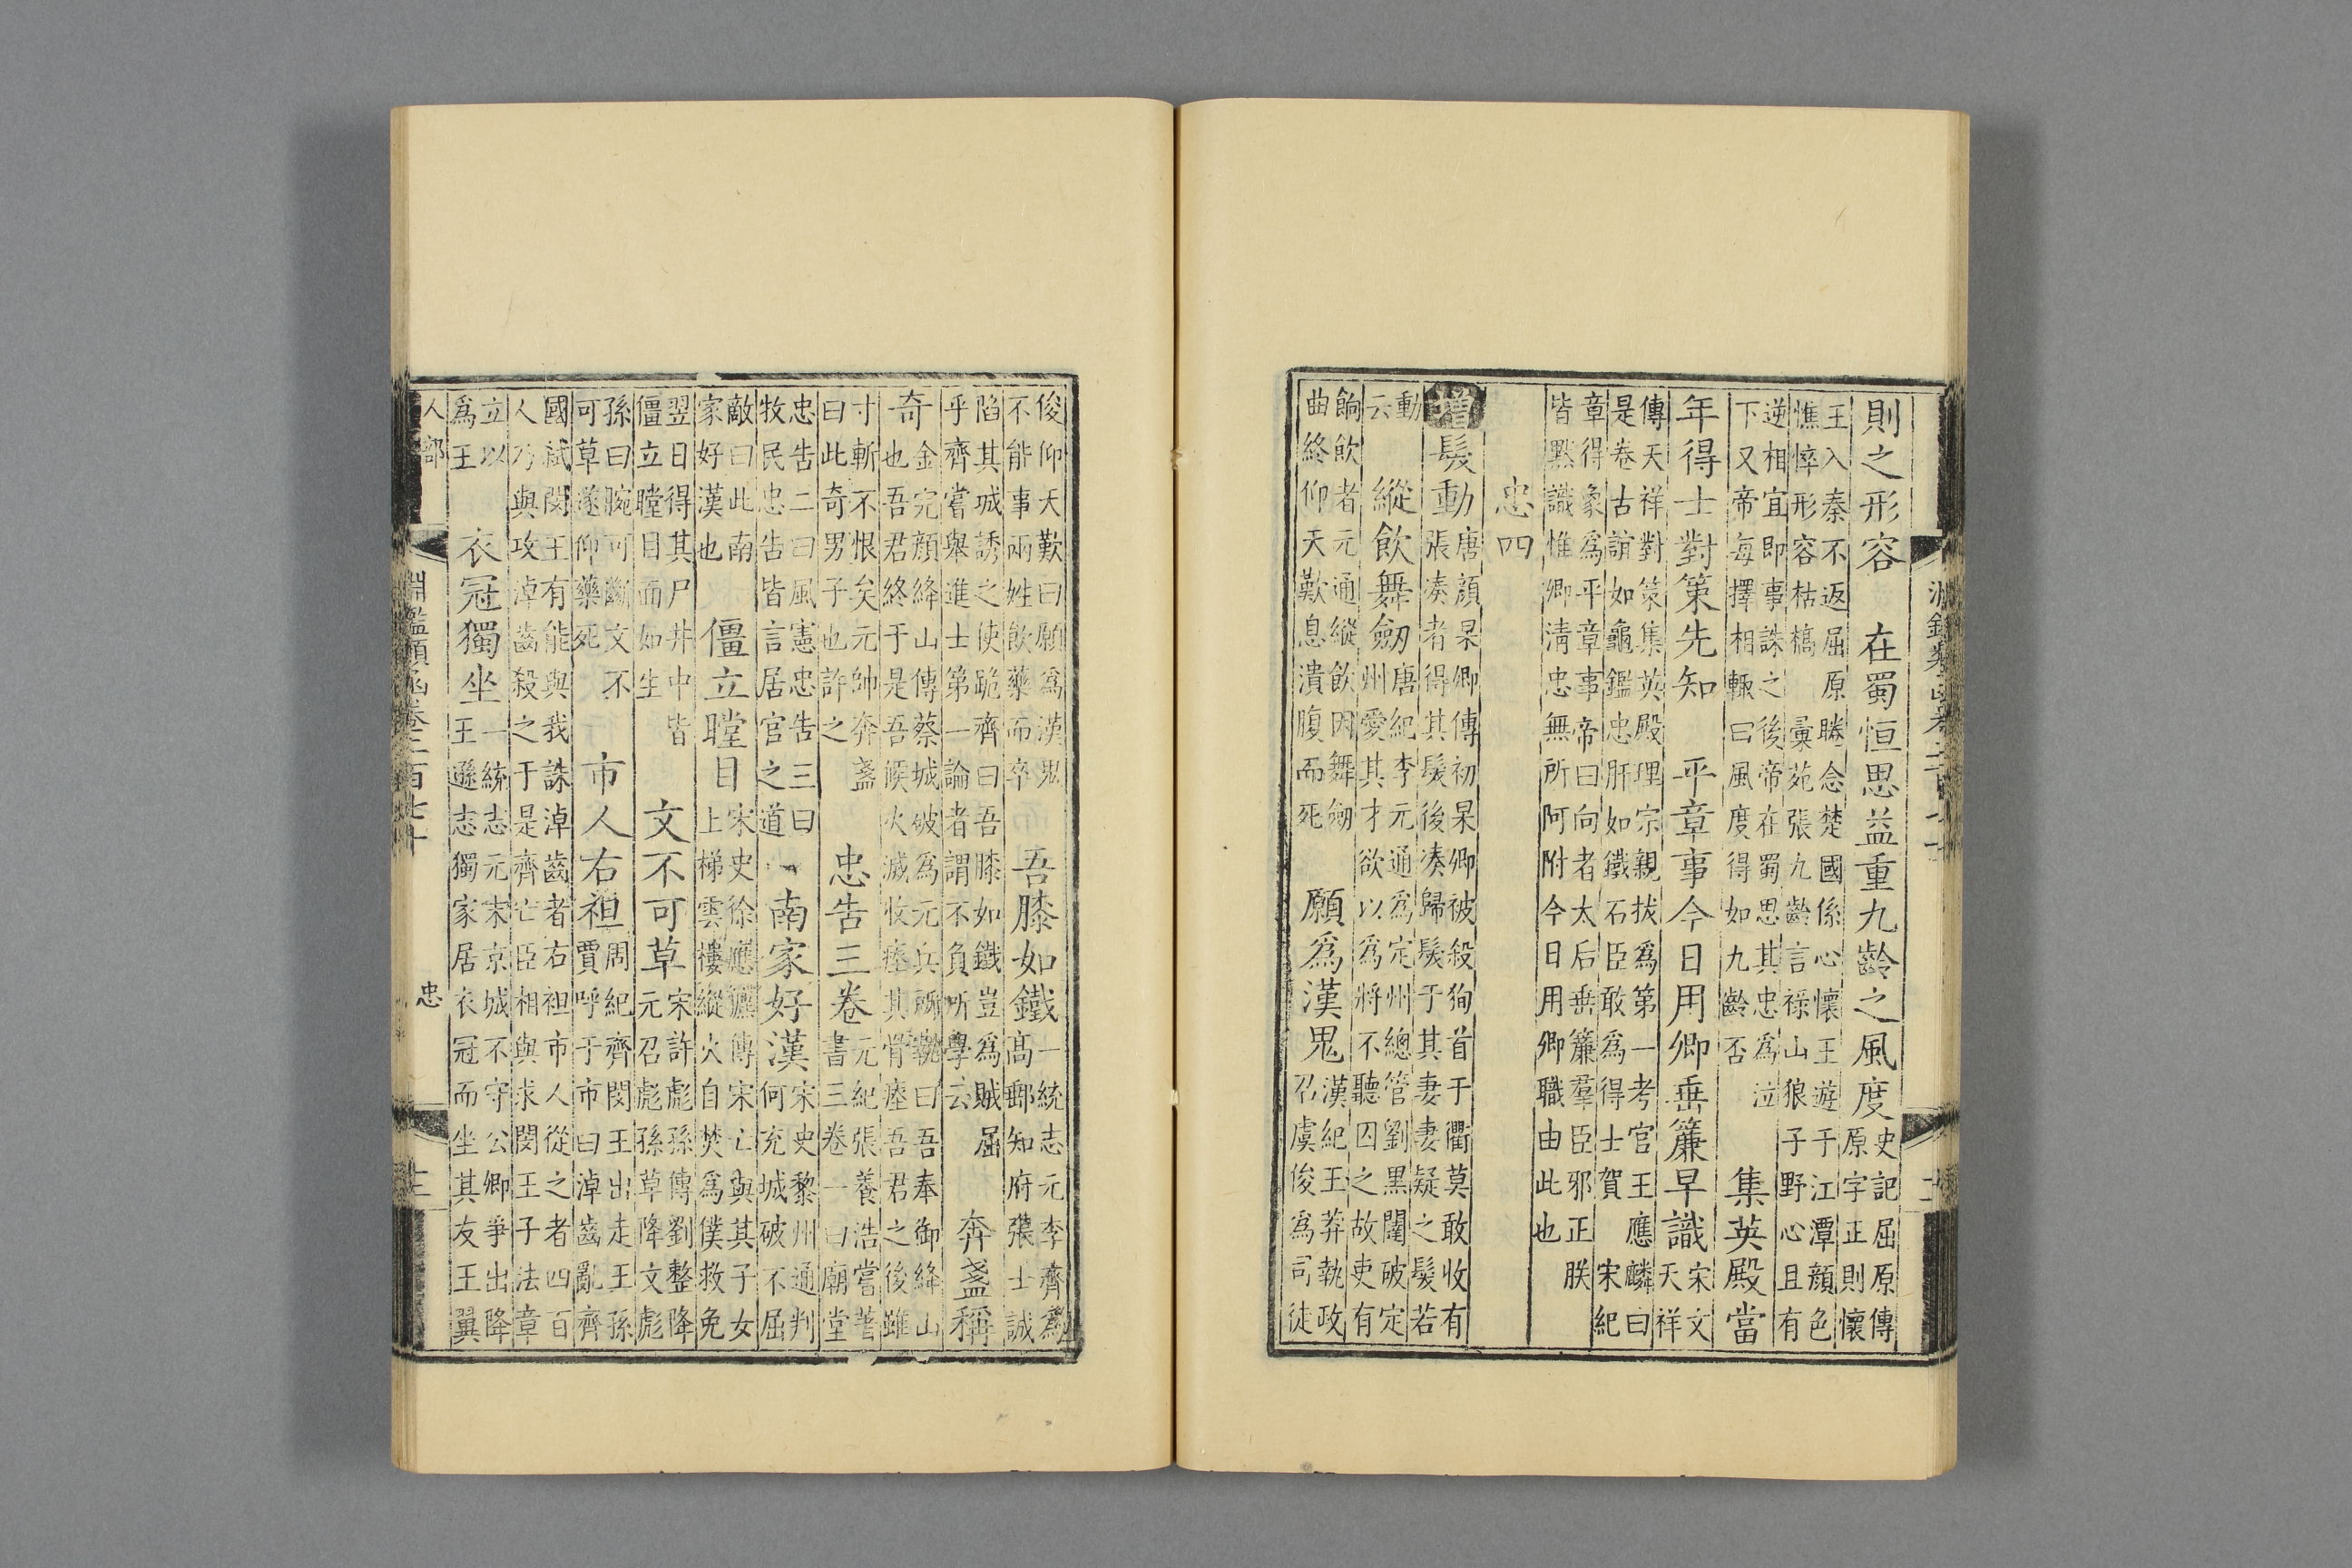 淵鑑類函卷二百七十
則之形容　在蜀恒思益重九齡之風度史記屈原傳
原字正則懷
王入秦不返屈原睠念楚國係心懷王遊于江潭顔色
憔悴形容枯槁　彙苑張九齡言祿山狼子野心且有
逆相宜即事誅之後帝在蜀思其忠爲泣
下又帝每擇相輒曰風度得如九齡否　集英殿當
年得士對策先知　平章事今日用卿垂簾早識宋文
天祥
傳天祥對策集英殿理宗親拔爲第一考官王應麟曰
是卷古誼如龜鑑忠肝如鐵石臣敢爲得士賀　宋紀
章得象爲平章事帝曰向者太后垂簾羣臣邪正朕
皆黙識惟卿清忠無所阿附今日用卿職由此也
忠四
增髮動唐顔杲卿傳初杲卿被殺狥首于衢莫敢收有
張湊者得其髮後湊歸髮于其妻妻疑之髮若
動
云　縱飲舞劒唐紀李元通爲定州總管劉黑闥破定
州愛其才欲以爲將不聽囚之故吏有
餉飲者元通縱飲因舞劒
曲終仰天歎息潰腹而死　願爲漢鬼漢紀王莽執政
召虞俊爲司徒
俊仰天歎曰願爲漢鬼
不能事兩姓飲藥而卒　吾膝如鐵一統志元李齊爲
高郵知府張士誠
陷其城誘之使跪齊曰吾膝如鐵豈爲賊屈
乎齊嘗舉進士第一論者謂不負所學云　奔盞稱
奇金完顔絳山傳蔡城破爲元兵所執曰吾奉御絳山
也吾君終于是吾候火滅收瘞其骨塟吾君之後雖
寸斬不恨矣元帥奔盞
曰此奇男子也許之　忠告三卷元紀張養浩嘗著
書三卷一曰廟堂
忠告二曰風憲忠告三曰
牧民忠告皆言居官之道　南家好漢宋史黎州通判
何充城破不屈
敵曰此南
家好漢也　僵立瞠目宋史徐應鑣傳宋亡與其子女
上梯雲樓縱火自焚爲僕救免
翌日得其尸井中皆
僵立瞠目而如生　文不可草宋許彪孫傳劉整降
元召彪孫草降文彪
孫曰腕可斷文不
可草遂仰藥死　市人右袒周紀齊閔王出走王孫
賈呼于市曰淖齒亂齊
國弑閔王有能與我誅淖齒者右袒市人從之者四百
人乃與攻淖齒殺之于是齊亡臣相與求閔王子法章
立以
爲王　衣冠獨坐一統志元末京城不守公卿爭出降
王遜志獨家居衣冠而坐其友王翼
人部　淵鑑類函卷二百七十　忠